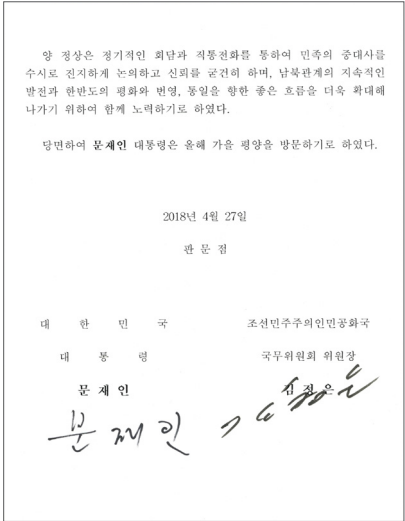 양 정상은 정기적인 회담과 직통전화를 통하여 민족의 중대사를
수시로 진지하게 논의하고 신뢰를 굳건히 하며, 남북관계의 지속적인
발전과 한반도의 평화와 번영, 통일을 향한 좋은 흐름을 더욱 확대해
나가기 위하여 함께 노력하기로 하였다.
당면하여 문재인 대통령은 올해 가을 평양을 방문하기로 하였다.
2018년 4월 27일
판 문 점
대 한 민 국 조선민주주의인민공화국
대 통 령 국무위원회 위원장
문 재 인 김 정 은
문 재 인 김정은